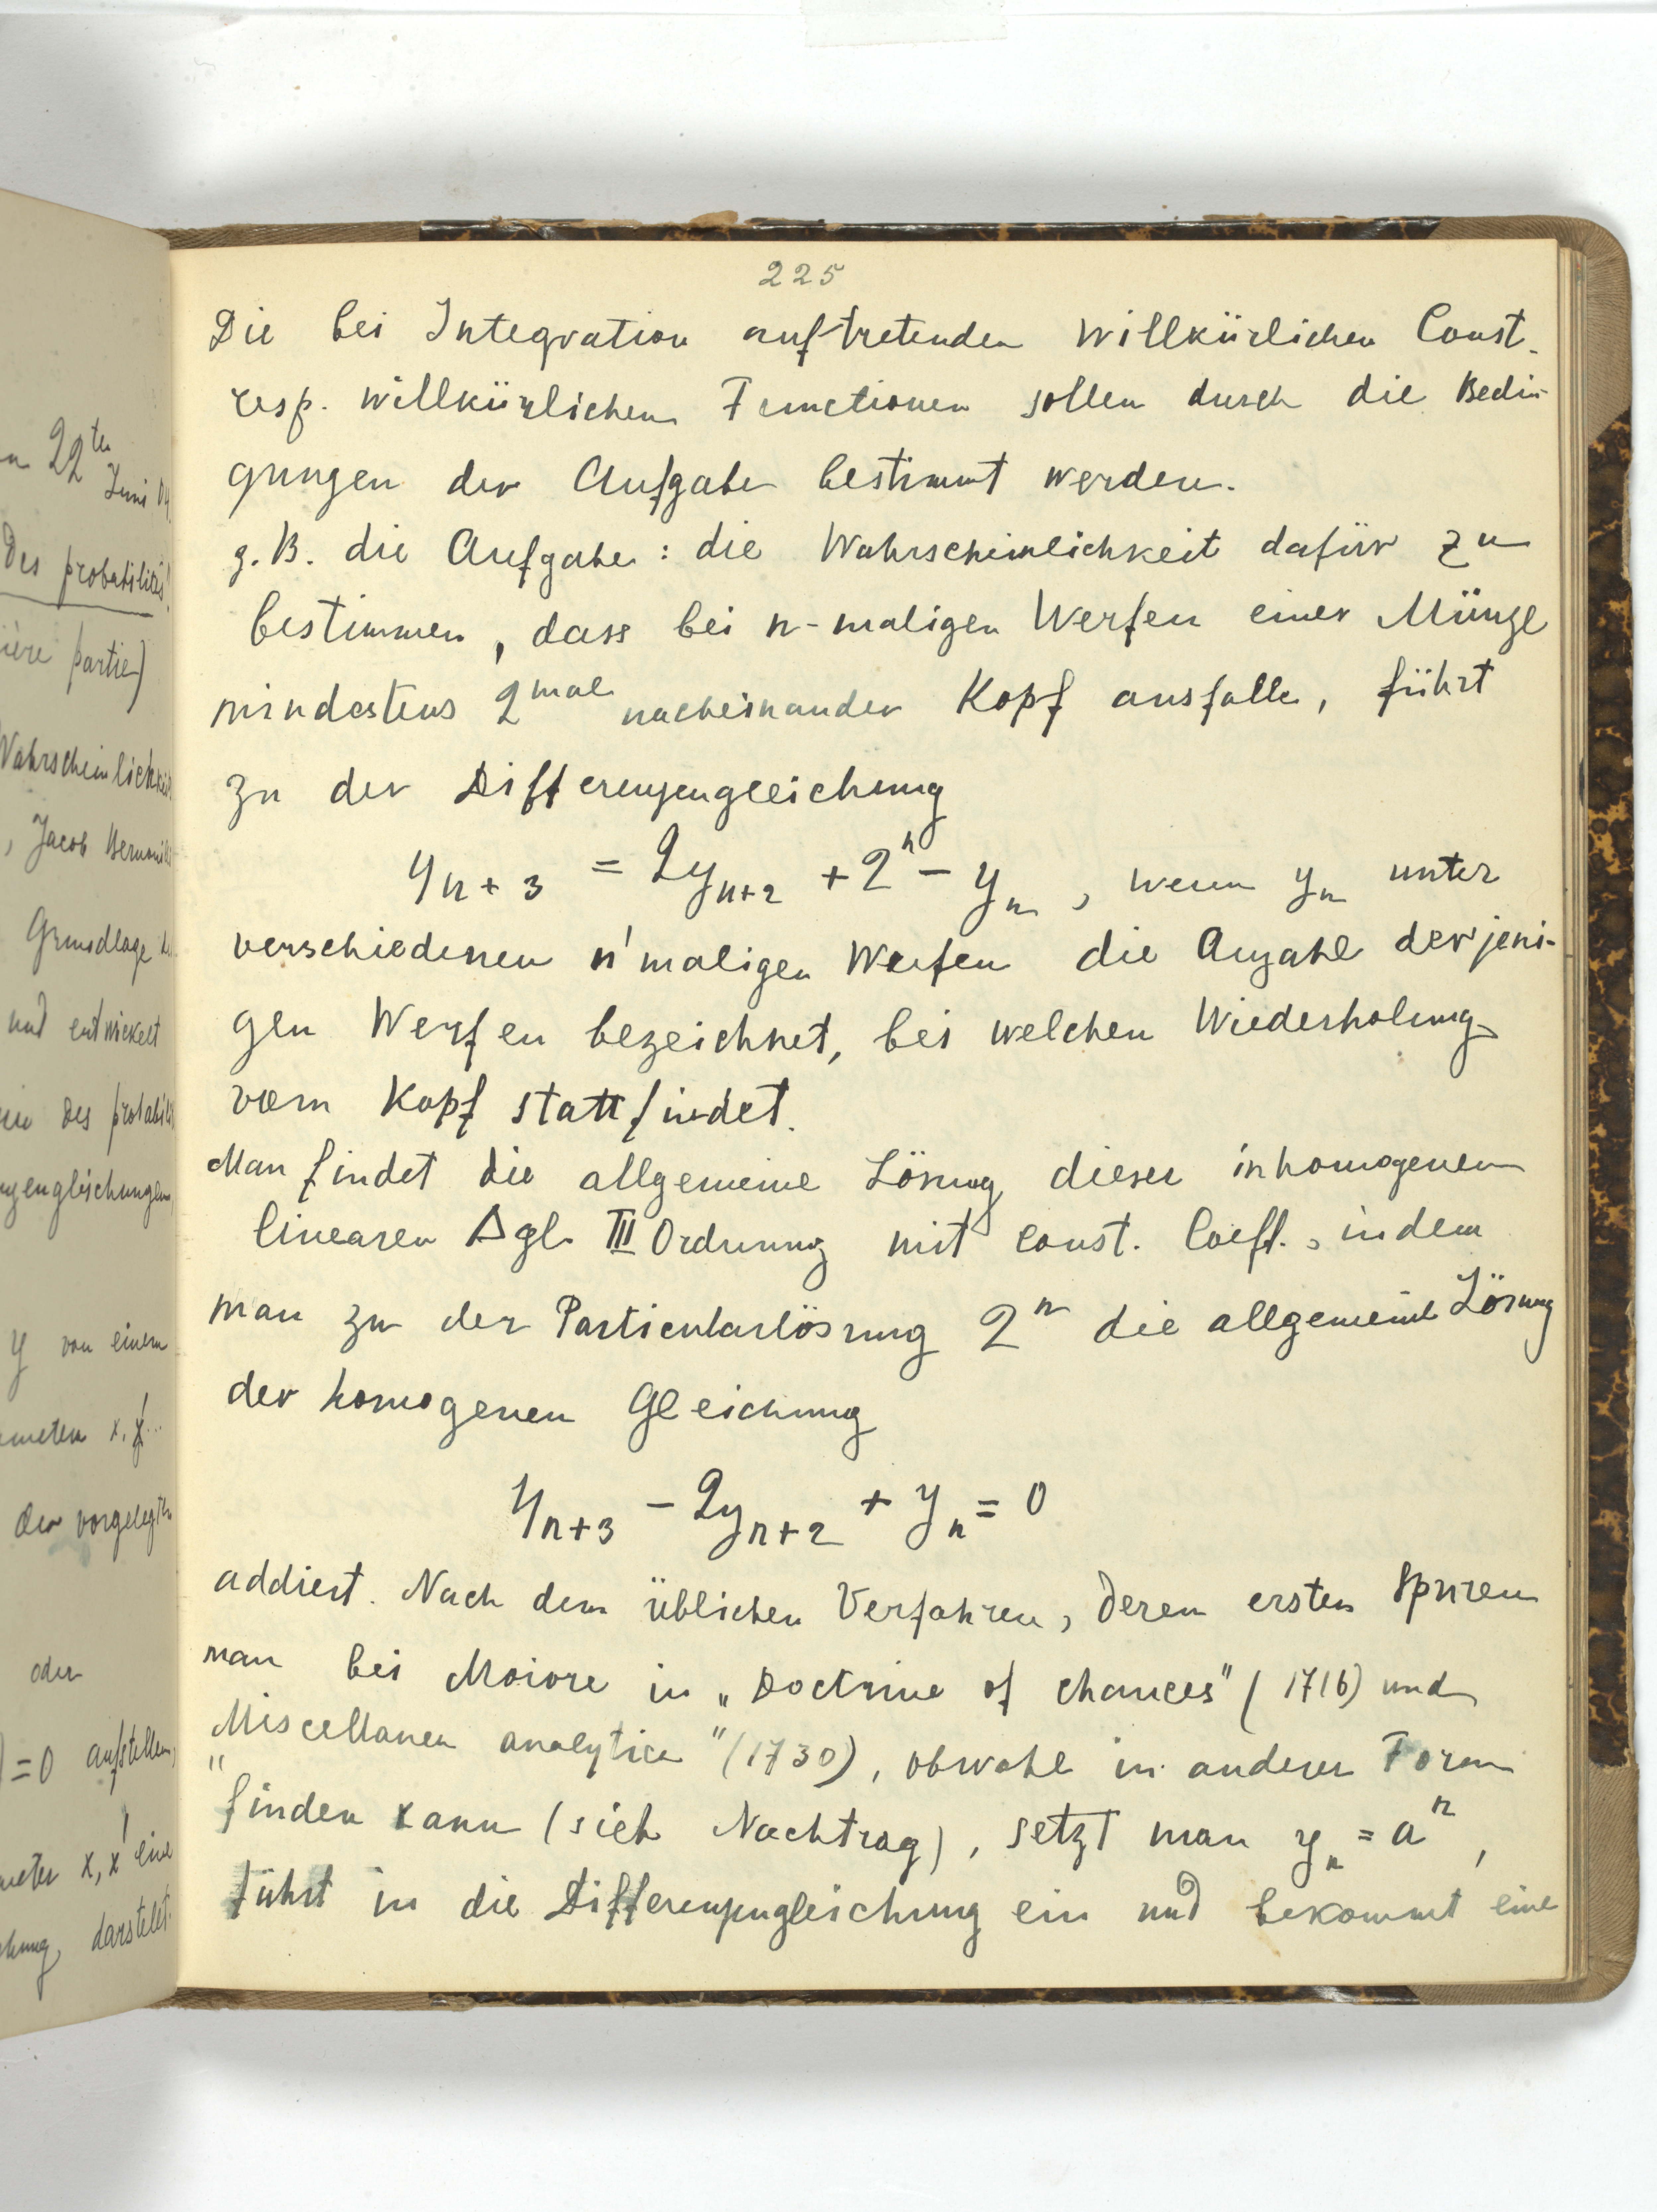 n 22ten
Juni 04.
Des probabilités!
ière partie)
Wahrscheinlichkeit
, Jacob Bernoulli
Grundlage
und entwickelt
Des probabilit
engleichungen
y von einem
x, x'...
der vorgelegten
oder
)=0 aufstellen,
x, x' eine
darstellt.
225
Die bei Integration auftretenden willkürlichen Const.
resp. willkürlichen Functionen sollen durch die Bedin-
gungen der Aufgabe bestimmt werden.
z. B. die Aufgabe: die Wahrscheinlichkeit dafür zu
bestimmen, dass bei n-maligen Werfen einer Münze
mindestens 2mal nacheinander Kopf ausfalle, führt
zu der Differenzengleichung
yn+3 = 2yn+2 + 2^n - yn, wenn yn unter
verschiedenen n'maligen Werfen die Anzahl derjeni-
gen Werfen bezeichnet, bei welchen Wiederholung
vom Kopf stattfindet.
Man findet die allgemeine Lösung dieser inhomogenen
linearen Δgl. III Ordnung mit const. Coeff., indem
man zu der Particularlösung 2^n die allgemeine Lösung
der homogenen Gleichung
yn+3 - 2yn+2 + yn = 0
addiert. Nach dem üblichen Verfahren, deren ersten Spuren
man bei Moivre in „Doctrine of chances" (1716) und
„Miscellanea analytica" (1730), obwohl in anderer Form
finden kann (sieh Nachtrag), setzt man yn = a^n,
führt in die Differenzengleichung ein und bekommt eine